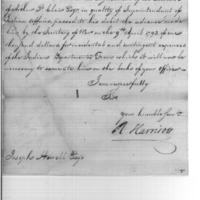 of Arthur St. Clair Esqr. in quality of Superintendent of
Indian Affairs, passed to his debit the advance made
him by the Secretary of War on the 9th April 1792, of one
thousand dollars for incidental and contingent expences
of the Indian Department; Since which it will now be
necessary to
him on the books of your office.
I am respectfully
Sir
your humble Servt
R. Harrison
Joseph Howell Esqr